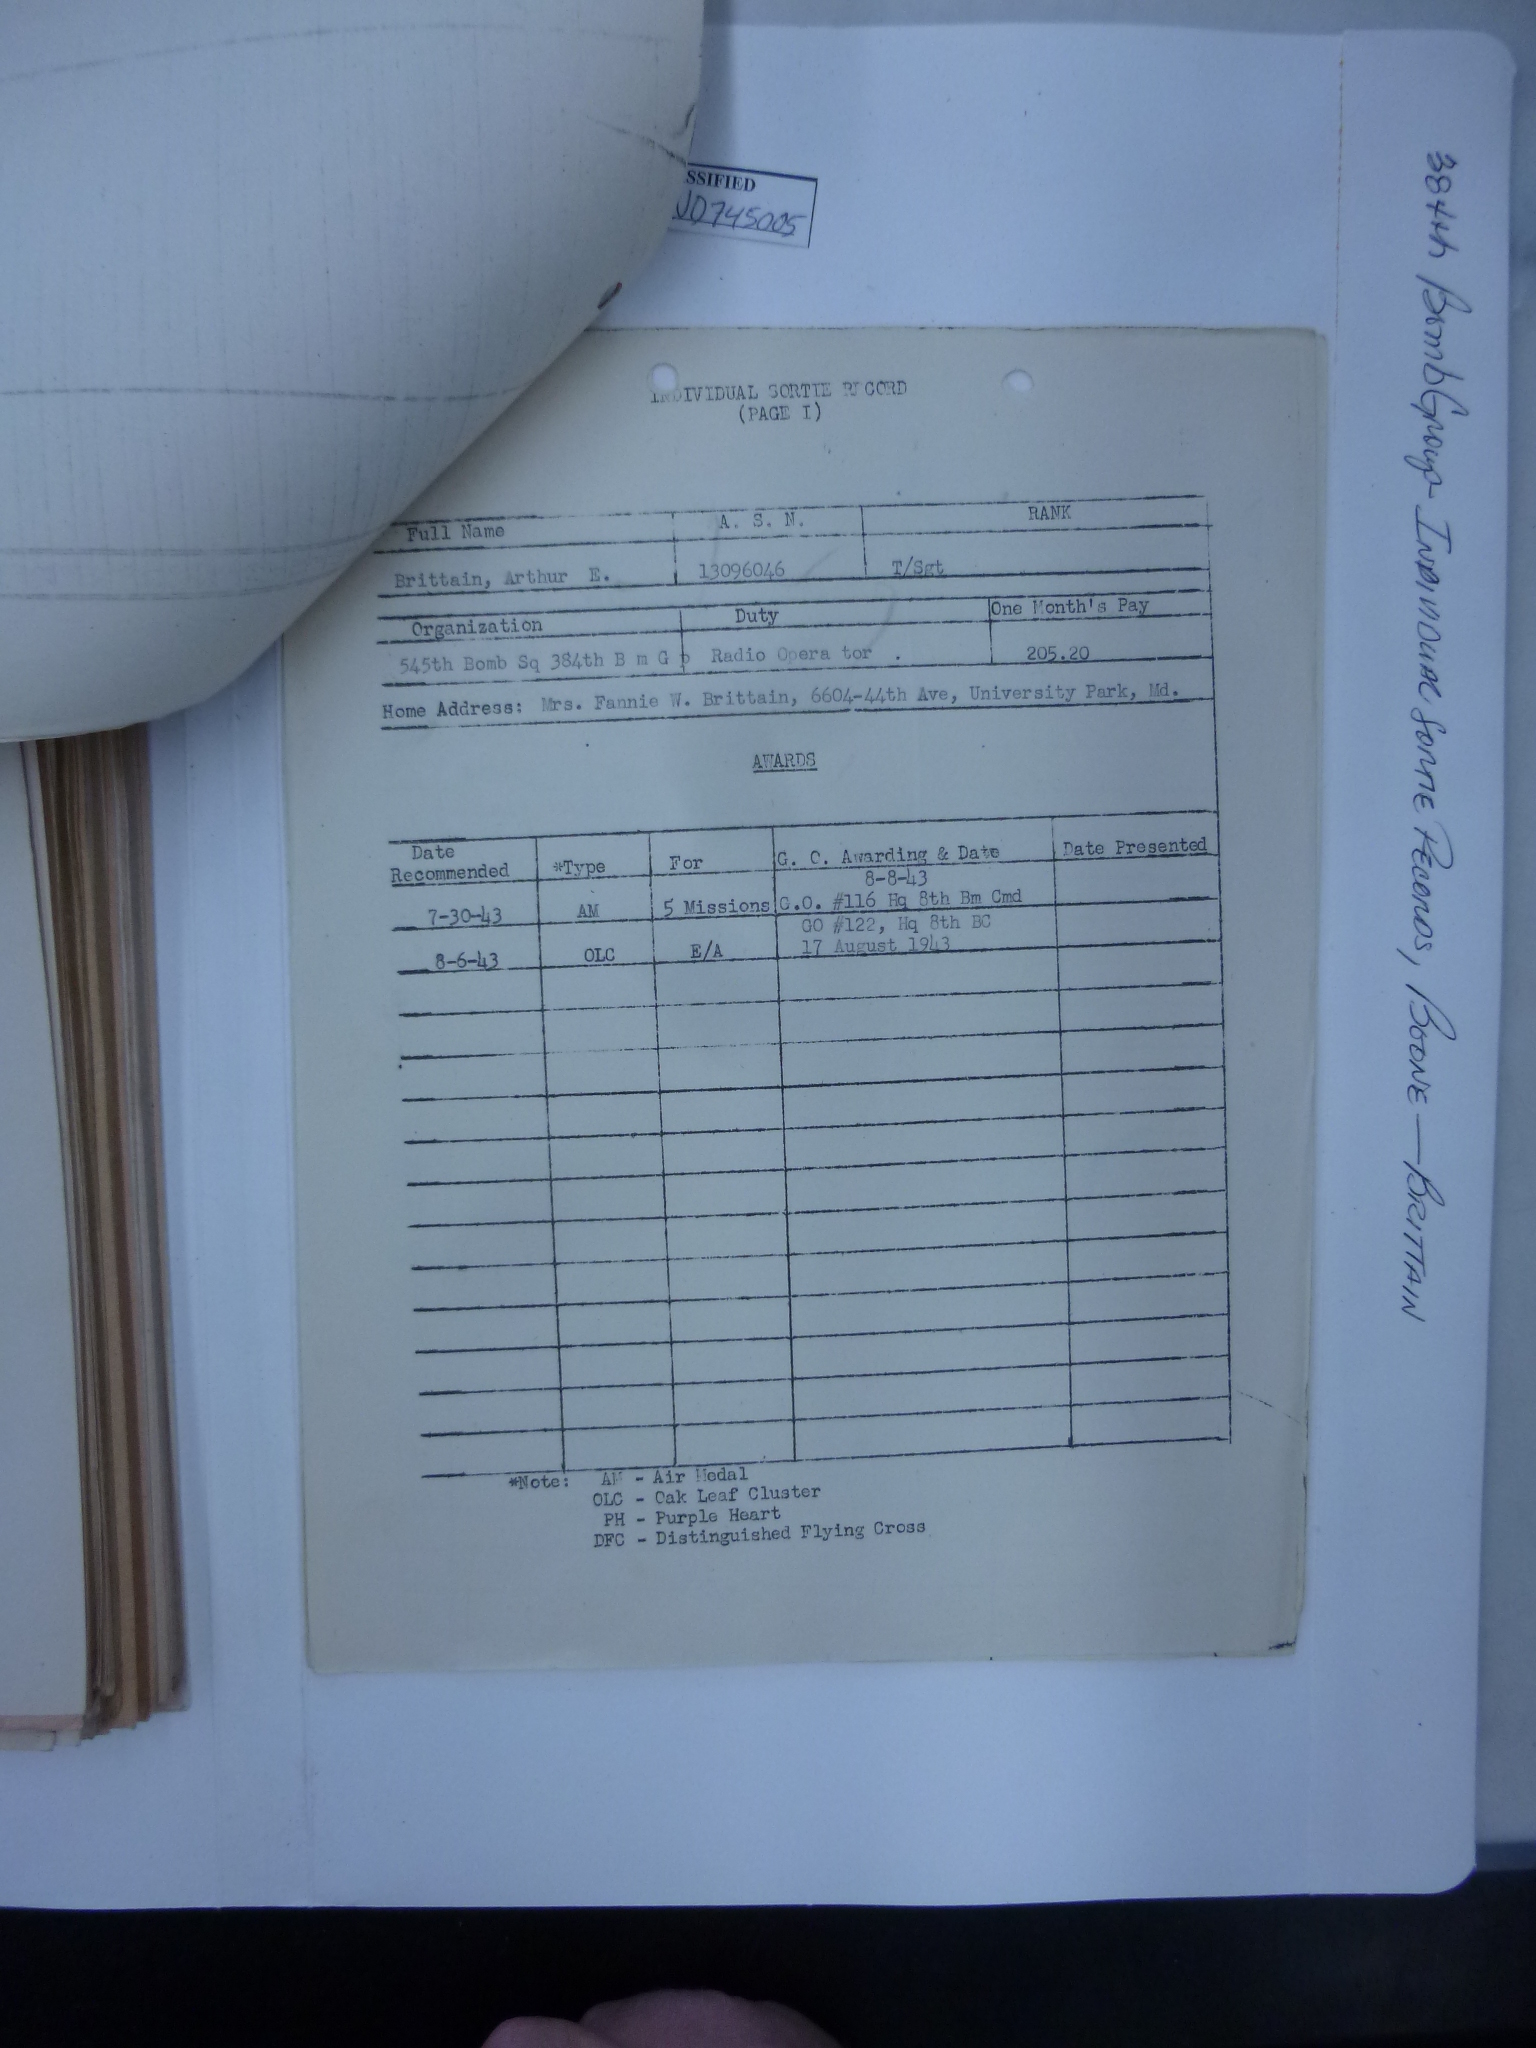 SSIFIED
ND745005
INDIVIDUAL SORTIE RECORD
(PAGE I)
Full Name A. S. N. RANK
Brittain, Arthur E. 13096046 T/Sgt
Organization Duty One Month's Pay
545th Bomb Sq 384th B m G p Radio Opera tor . 205.20
Home Address: Mrs. Fannie W. Brittain, 6604-44th Ave, University Park, Md.
AWARDS
Date Recommended *Type For G. C. Awarding & Date Date Presented
8-8-43
7-30-43 AM 5 Missions G.O. #116 Hq 8th Bm Cmd
GO #122, Hq 8th BC
8-6-43 OLC E/A 17 August 1943
*Note: AM - Air Medal
OLC - Oak Leaf Cluster
PH - Purple Heart
DFC - Distinguished Flying Cross
384th Bomb Group - Individual Sortie Records, Boone — Brittain